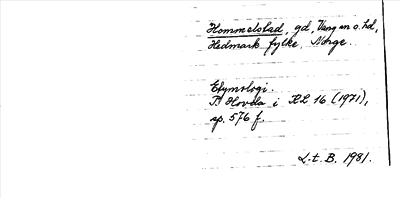 Hommelstad, gd, Vang sn o. hd,
Hedmark fylke, Norge.
Etymologi.
P. Hovda i KL 16 (1971),
sp. 576 f.
L.t. B. 1981.